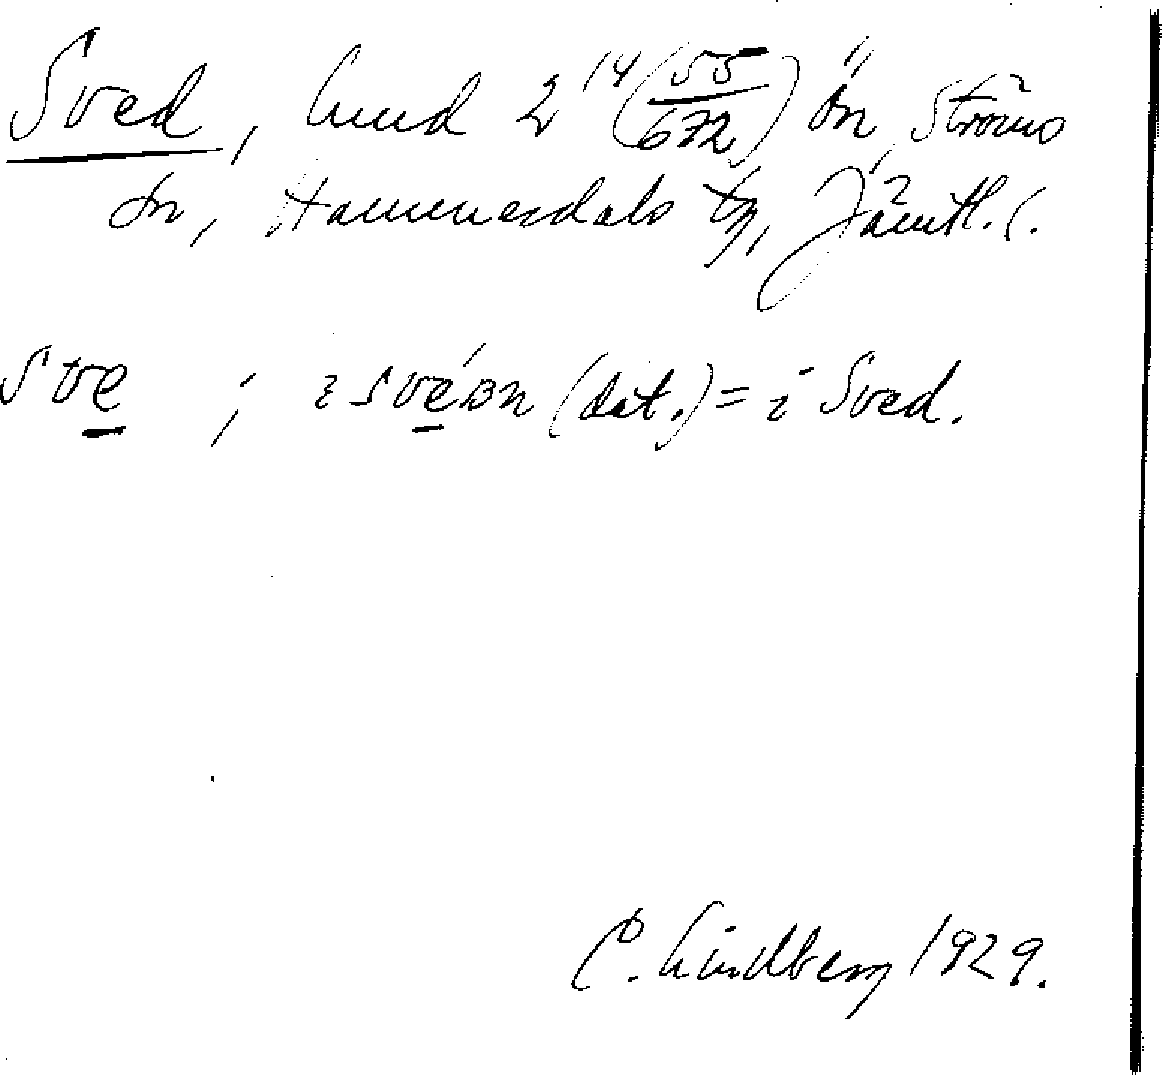 Sved, hmd 2¹⁴(55/672) Ön, Ströms
sn, Hammerdals tg, Jämtl. l.
Sve ; i své̱ɷn (dat.) = i Sved.
C. Lindberg 1929.